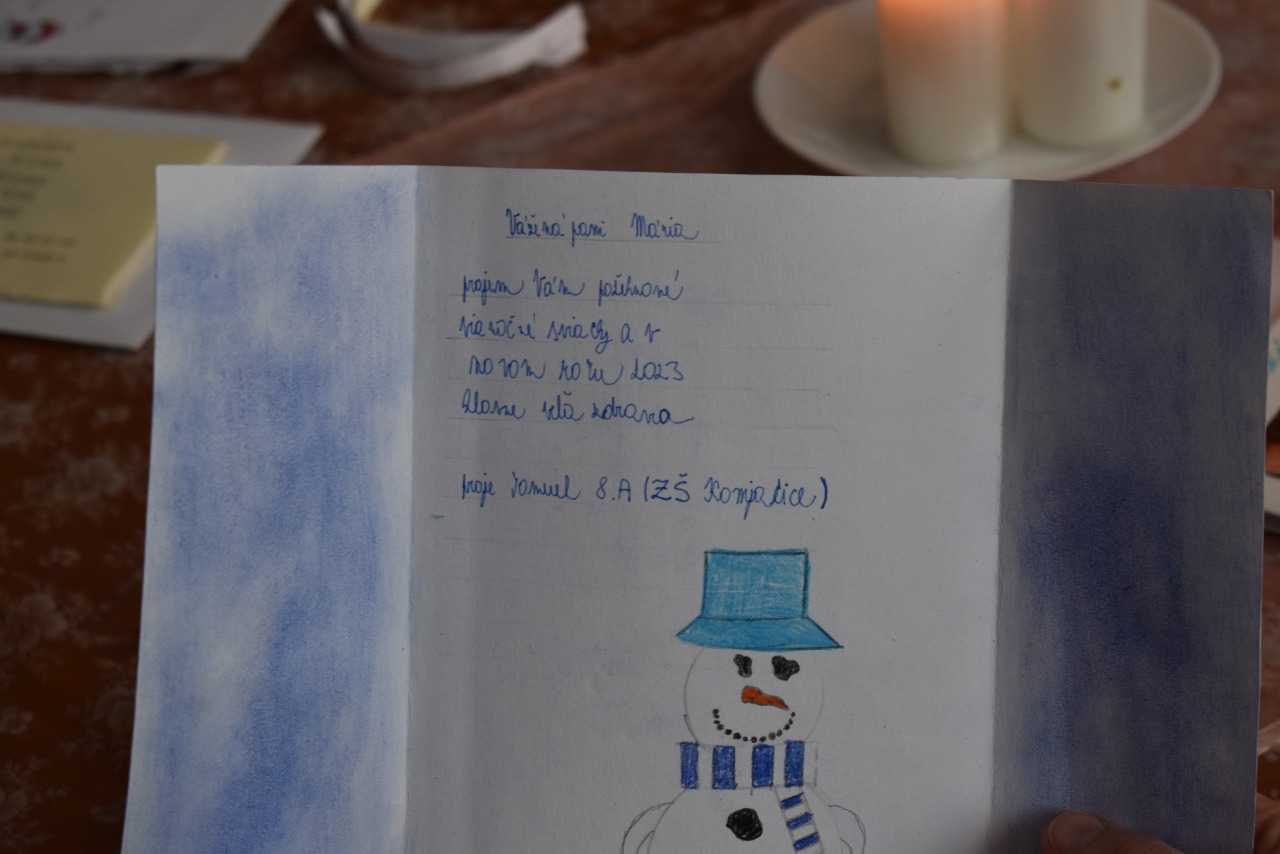 Vážená pani Mária
prajem Vám požehnané
vianočné sviatky a v
novom roku 2023
hlavne veľa zdravia
praje Samuel 8.A (ZŠ Komjatice)